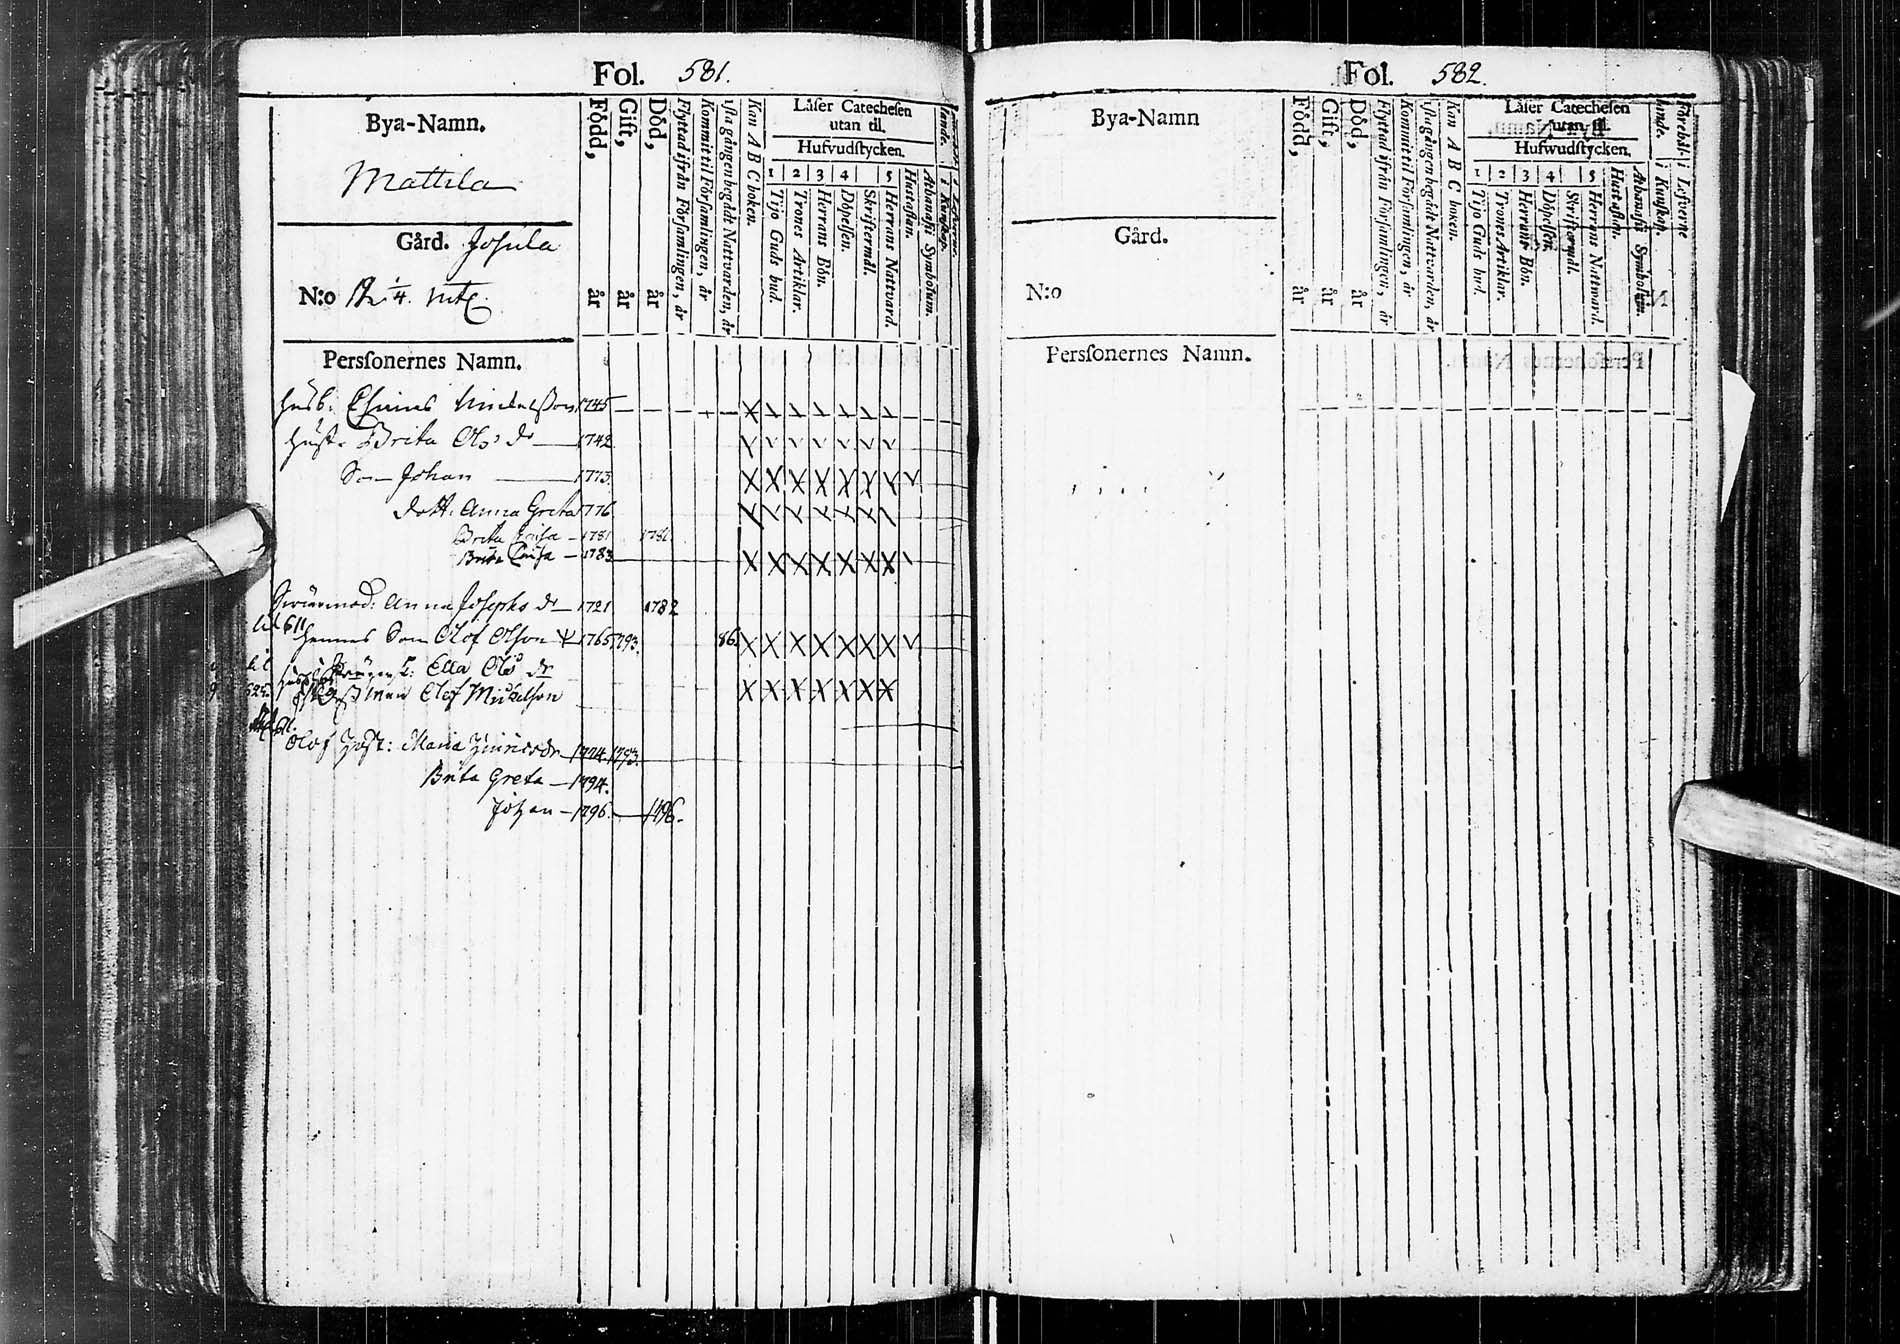 Fol. 581.
Bya-Namn.
Mattila
Gård. Josula
N:o 1/4.
Född, år
Gift, år
Död, år
Flyttad ifrån Församlingen, år
Kommit til Församlingen, år
1sta gången begådt Nattvarden, år
Kan A B C boken.
Låser Catechesen
utan til.
Hufvudstycken.
1 Tijo Guds bud.
2 Trones Artiklar.
3 Herrans Bön.
4 Döpelsen.
Skriftermål.
5 Herrans Nattvard.
Hustaflan.
Athanasii Symbolum.
i Kunskap.
Persſonernes Namn.
Husb. Michelsson 1745
Hust. Brita Ols dr 1742
Son Johan 1773
dott. Anna Greta 1776
Brita Caisa 1781 1782
Brita Caisa 1783
Swärmod: Anna Josephs dr 1721 1782
Hennes Son Olof Olson 1765 1793. 86
Ella Ols dr
Olof Michelson
Olof Hust: Maria Hinricsdr 1774. 1793.
Brita Greta 1794.
Johan 1796. 1796.
Fol. 582.
Bya-Namn
Gård.
N:o
Född, år
Gift, år
Död, år
Flyttad ifrån Församlingen, år
Kommit til Församlingen, år
1sta gången begådt Nattvarden, år
Kan A B C boken.
Låser Catechesen
utan til.
Hufwudstycken.
1 Tijo Guds bud.
2 Trones Artiklar.
3 Herrans Bön.
4 Döpelsen.
Skriftermål.
5 Herrans Nattward.
Hustaflan.
Athanasii Symbolum.
i Kunskap.
i Lefverne
Persſonernes Namn.